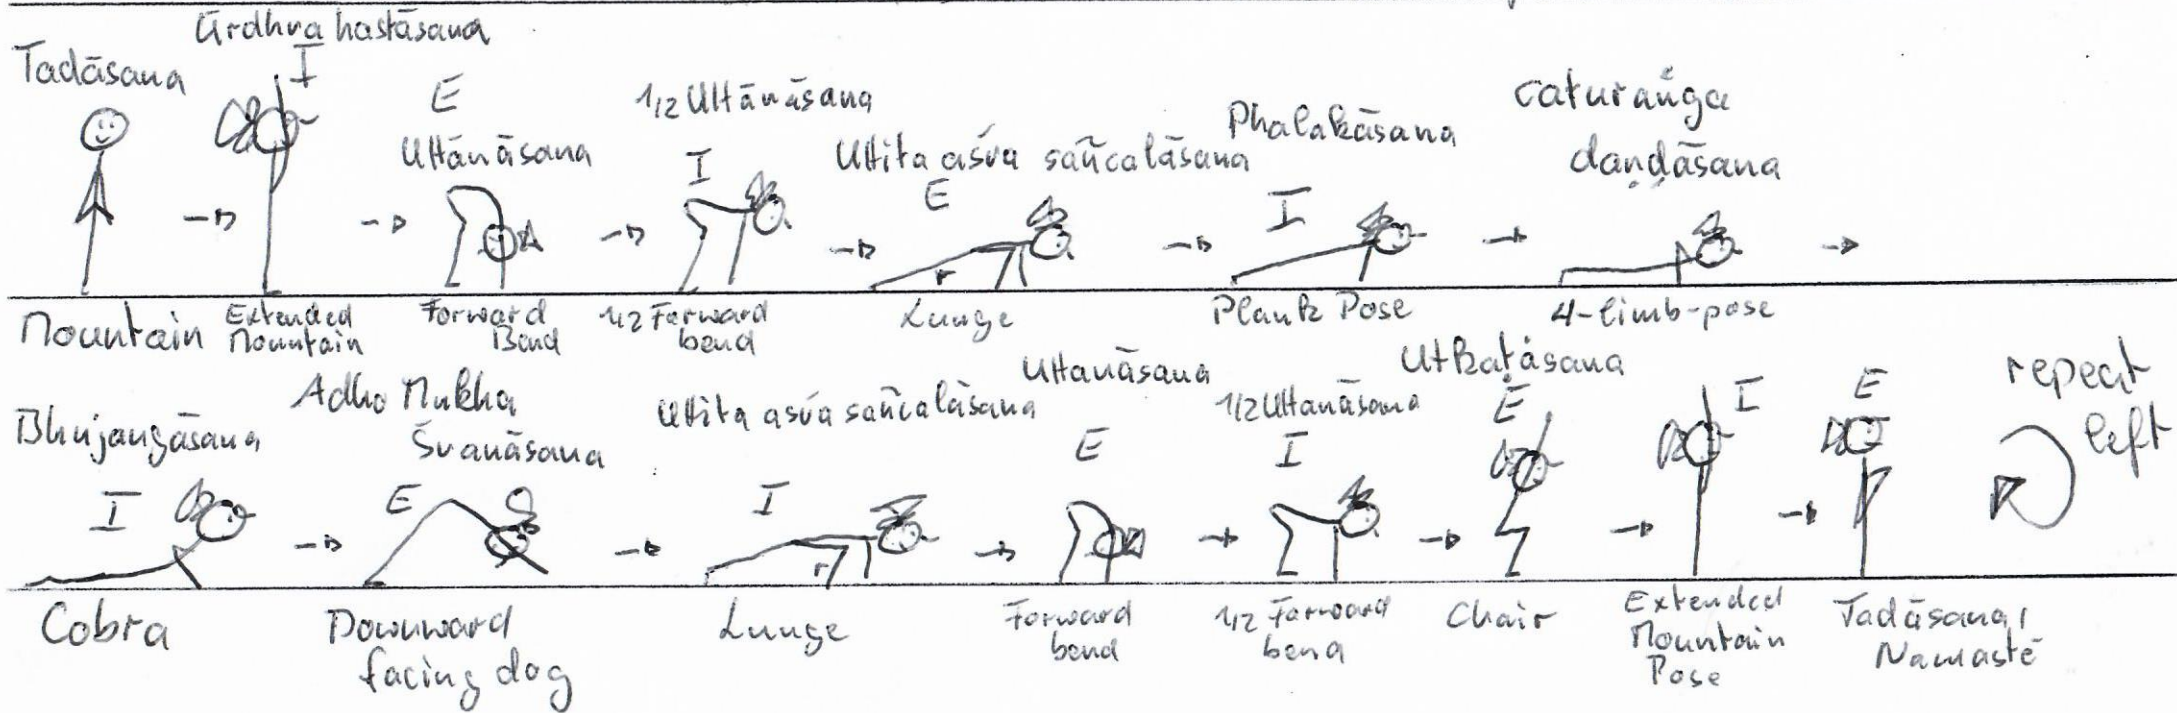 Ūrdhva hastāsana
Tadāsana
I
E
Uttānāsana
1/2 Uttānāsana
I
Uttita aśva sañcalāsana
E
Phalakāsana
I
caturaṅga
daṇḍāsana
r
Mountain
Extended
Mountain
Forward
Bend
1/2 Forward
bend
Lunge
Plank Pose
4-limb-pose
Bhujangāsana
I
Adho Mukha
Śvanāsana
E
Uttita aśva sañcalāsana
I
Uttanāsana
E
1/2 Uttanāsana
I
Utkaṭāsana
E
I
E
repeat
left
r
Cobra
Downward
facing dog
Lunge
Forward
bend
1/2 Forward
bend
Chair
Extended
Mountain
Pose
Tadāsana/
Namasté